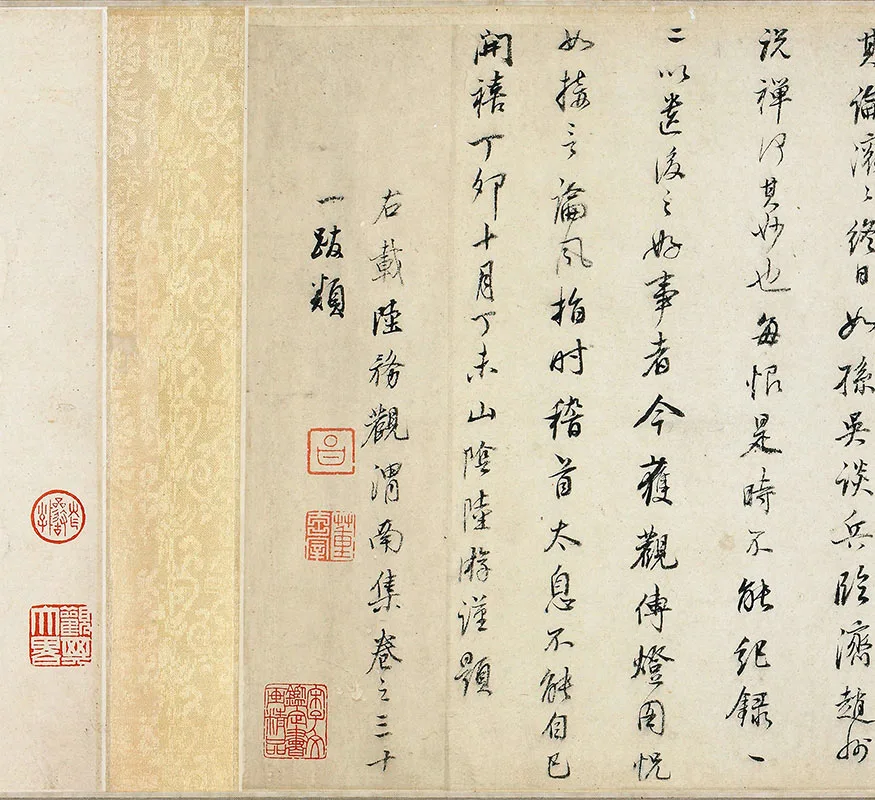 其論滚〻終日如孫吳談兵臨濟趙州
說禪何其妙也每恨是時不能紀錄一
二以遺後之好事者今獲觀傳燈圖恍
如接言論風指時稽首太息不能自已
開禧丁卯十月丁未山陰陸游謹題
右載陸務觀渭南集卷之三十
一跋類